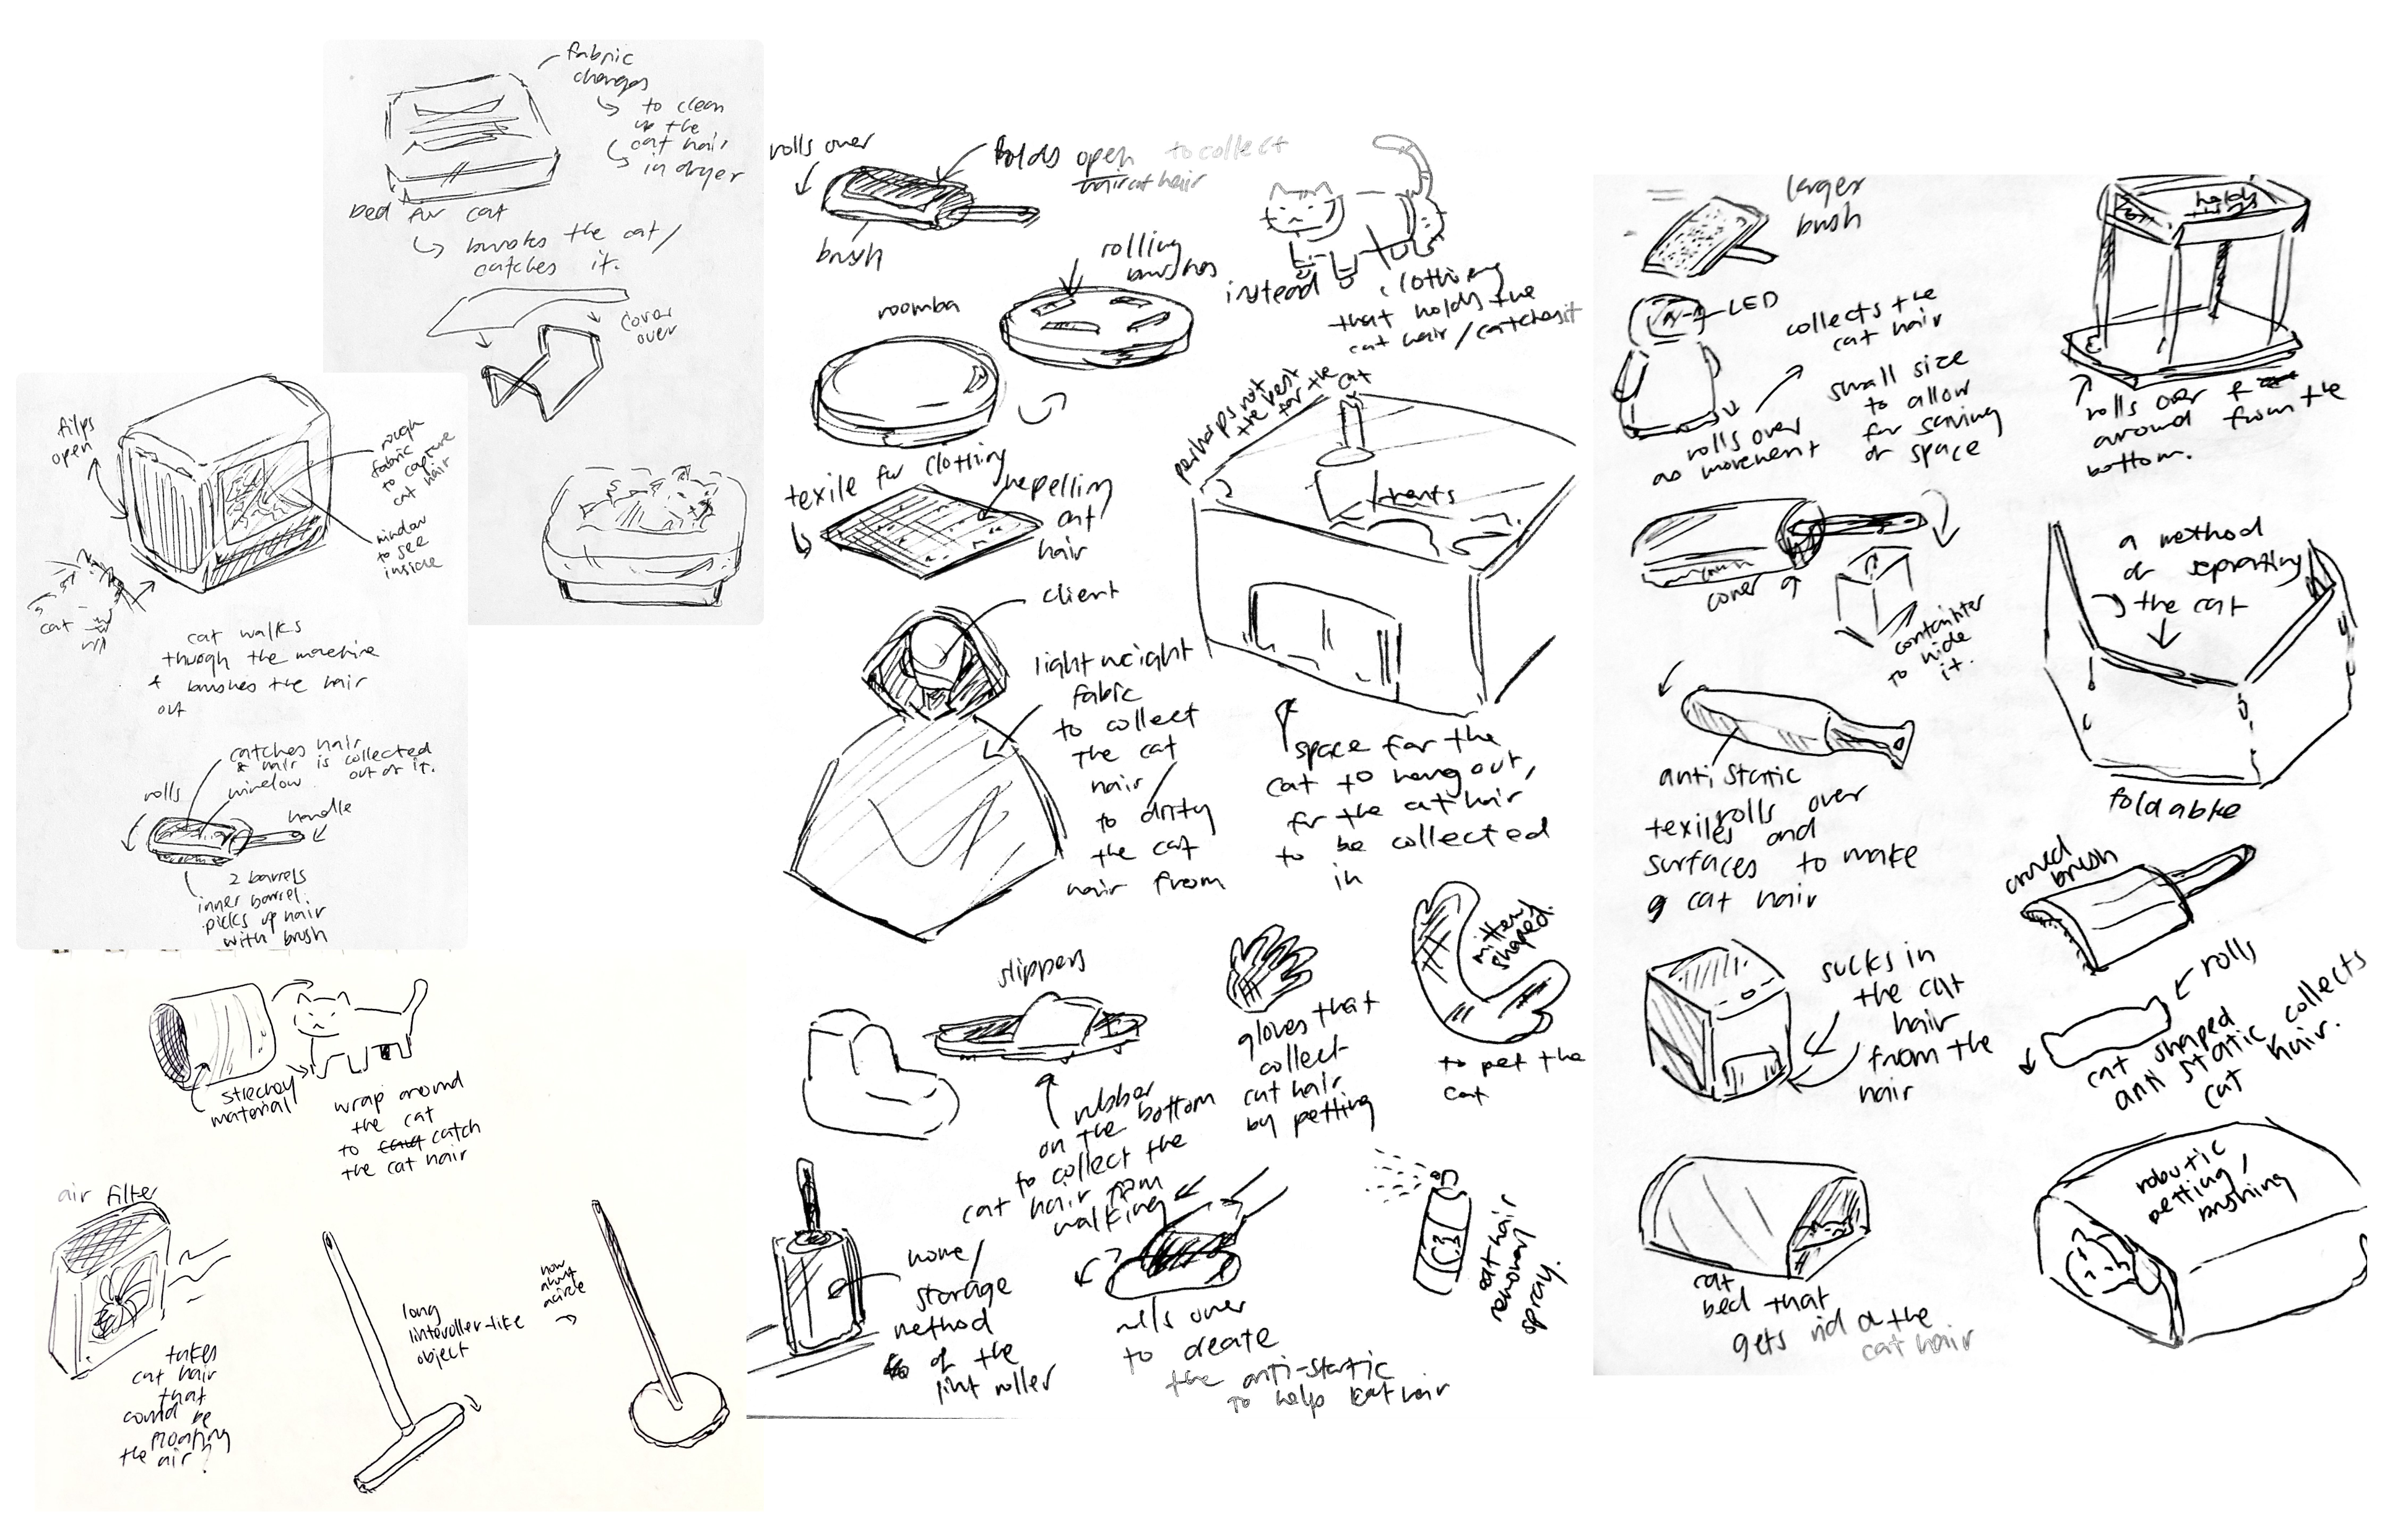 fabric
changes
to clean
up the
cat hair
in dryer
bed for cat
brushes the cat/
catches it.
cover
over
flips
open
rough
fabric
to capture
cat hair
window
to see
inside
cat
cat walks
through the machine
& brushes the hair
out
catches hair
& hair is collected
window out of it.
rolls
handle
2 barrels
inner barrel
picks up hair
with brush
strechy
material
wrap around
the cat
to catch
the cat hair
air filter
takes
cat hair
that
could be
floating
the air?
long
lintroller-like
object
how
about
a circle
rolls over
folds open to collect
cat hair
brush
rolling
brushes
roomba
instead clothing
that holds the
cat hair/catches it
texile for clothing
repelling
cat
hair
perhaps not
the best
for the
cat
vents
client
light weight
fabric
to collect
the cat
hair
to dirty
the cat
hair from
space for the
cat to hang out,
for the cat hair
to be collected
in
slippers
rubber
on the bottom
to collect the
cat hair from
walking
gloves that
collect
cat hair
by petting
mitten
shaped.
to pet the
cat
storage
method
of the
lint roller
rolls over
to create
the anti-static
to help cat hair
cat hair
removal
spray.
larger
brush
LED
collects the
cat hair
small size
to allow
for saving
of space
rolls over
as movement
holds
things
rolls over &
around from the
bottom.
cover
containter
to hide
it.
a method
of seprating
the cat
foldable
anti static
texiles rolls over
and
surfaces to make
cat hair
curved
brush
sucks in
the cat
hair
from the
hair
rolls
cat shaped
anti static collects
cat hair.
cat
bed that
gets rid of the
cat hair
robotic
petting/
brushing